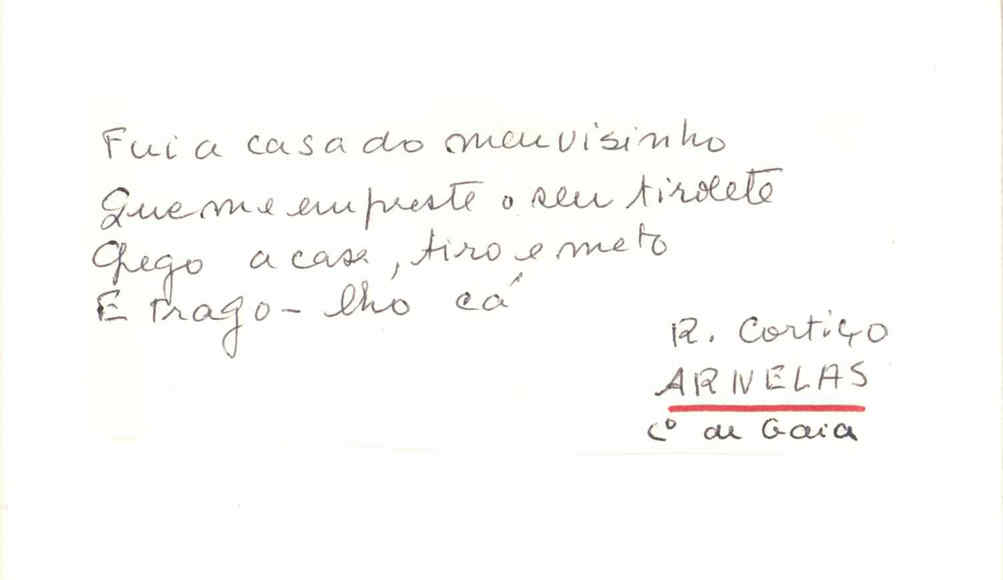 Fui a casa do meu visinho
Que me empreste o seu tirolete
Chego a casa, tiro e meto
E trago-lho cá
R. Cortiço
ARNELAS
Cº de Gaia